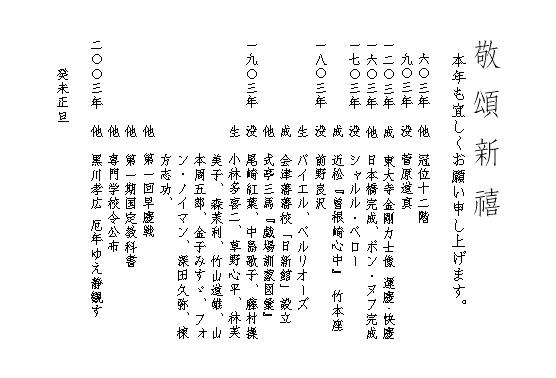 敬頌新禧
本年も宜しくお願い申し上げます。
六〇三年 他 冠位十二階
九〇三年 没 菅原道真
一二〇三年 成 東大寺金剛力士像 運慶・快慶
一六〇三年 他 日本橋完成、ポン・ヌフ完成
一七〇三年 没 シャルル・ペロー
成 近松『曽根崎心中』 竹本座
一八〇三年 没 前野良沢
生 バイエル、ベルリオーズ
成 会津藩藩校「日新館」設立
他 式亭三馬『戯場訓蒙図彙』
一九〇三年 没 尾崎紅葉、中島歌子、藤村操
生 小林多喜二、草野心平、林芙
美子、森茉莉、竹山道雄、山
本周五郎、金子みすゞ、フォ
ン・ノイマン、深田久弥、棟
方志功、
他 第一回早慶戦
他 第一期国定教科書
他 専門学校令公布
二〇〇三年 他 黒川孝広 厄年ゆえ静観す
癸未正旦